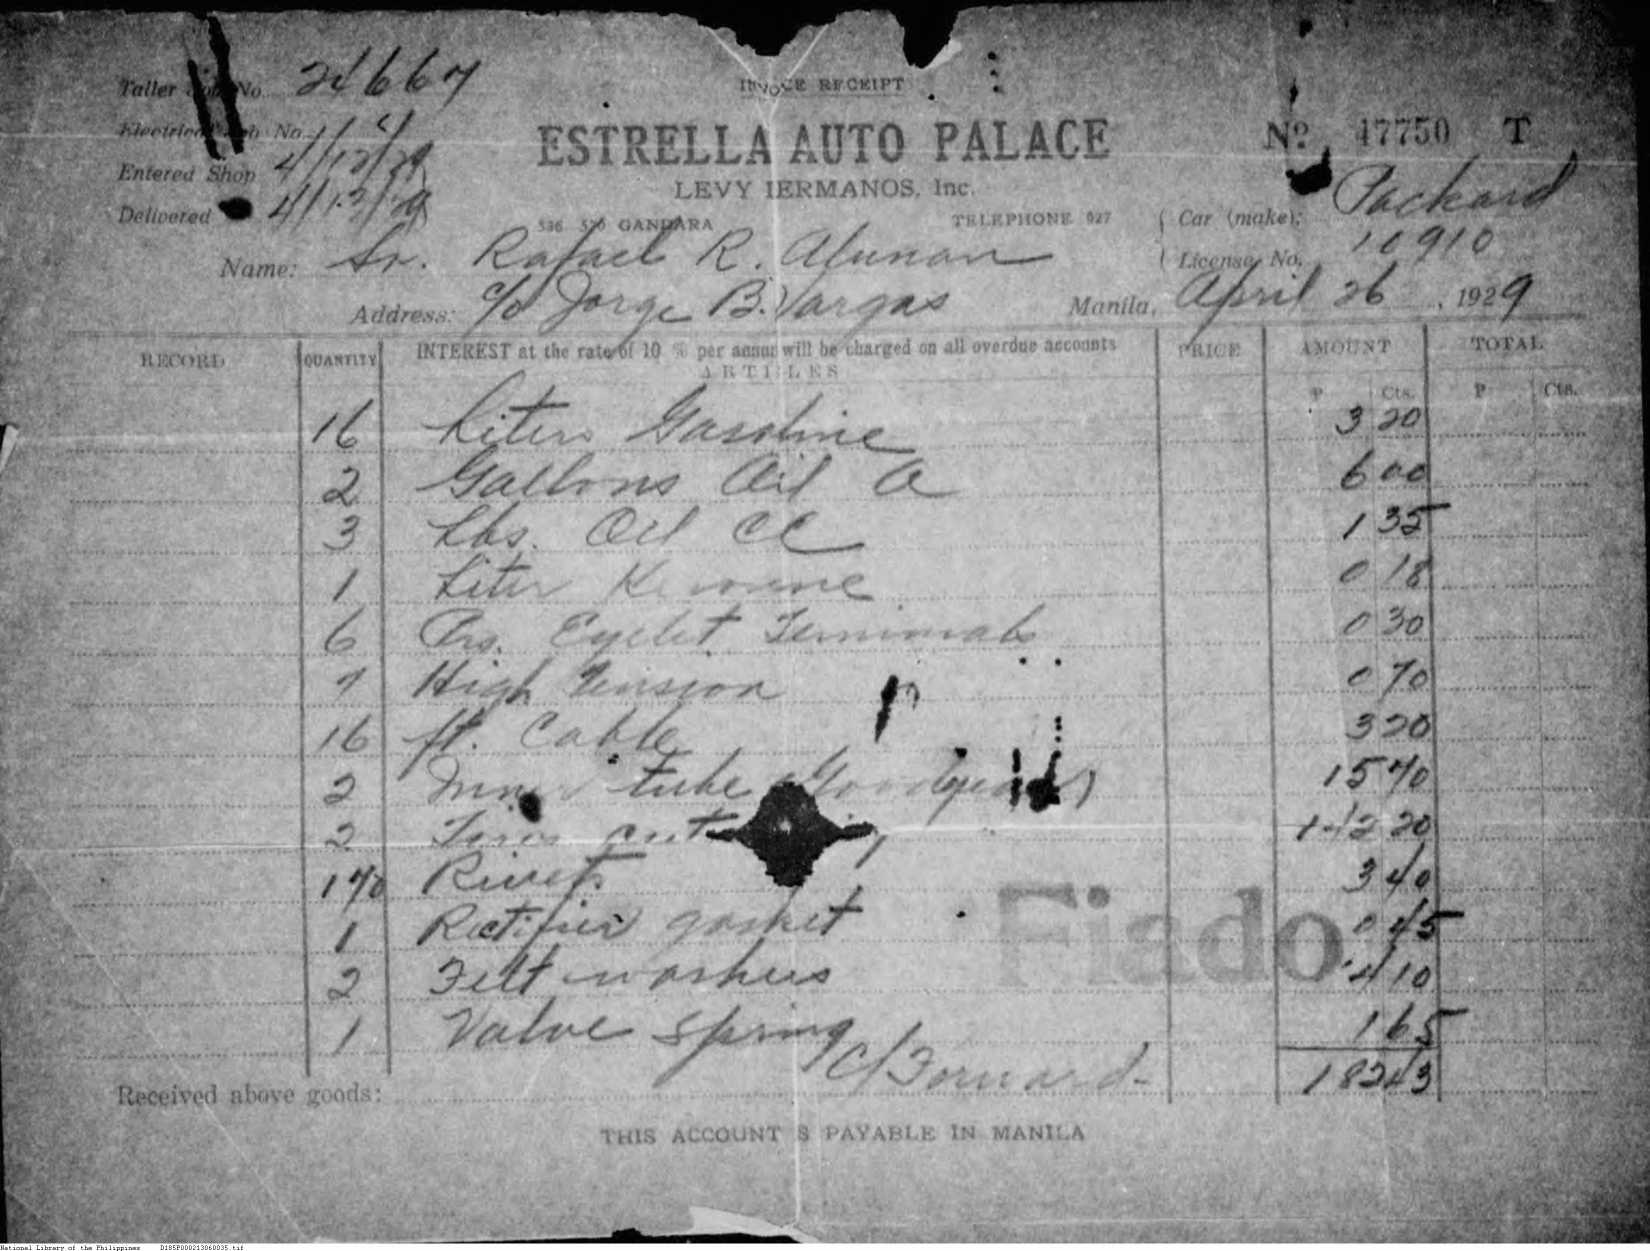 INVOICE RECEIPT
Taller Job No. 24667
ESTRELLA AUTO PALACE
Nº 47750 T
Electrical Job No.
LEVY HERMANOS, Inc.
Entered Shop 4/12/29
Delivered 4/13/29
536 GANDARA TELEPHONE 627
Car (make): Packard
Name: Sr. Rafael R. Alunan
License No. 10910
Address: c/o Jorge B. Vargas
Manila, April 26, 1929
RECORD QUANTITY INTEREST at the rate of 10 % per annum will be charged on all overdue accounts PRICE AMOUNT TOTAL
ARTICLES
P Cts. P Cts.
16 Liters Gasoline 3 20
2 Gallons Oil A 6 00
3 Lbs. Oil CC 1 35
1 Liter Kerosene 0 18
6 Prs. Eyelet Terminals 0 30
7 High Tension 0 70
16 ft. Cable 3 20
2 Inner tube Goodyear 15 70
2 20
170 Rivets 3 40
1 Rectifier gasket 0 45
2 Felt washers 4 10
1 Valve Spring 1 65
C/Forward- 182 43
Fiado
Received above goods:
THIS ACCOUNT IS PAYABLE IN MANILA
National Library of the Philippines D185P000213060035.tif